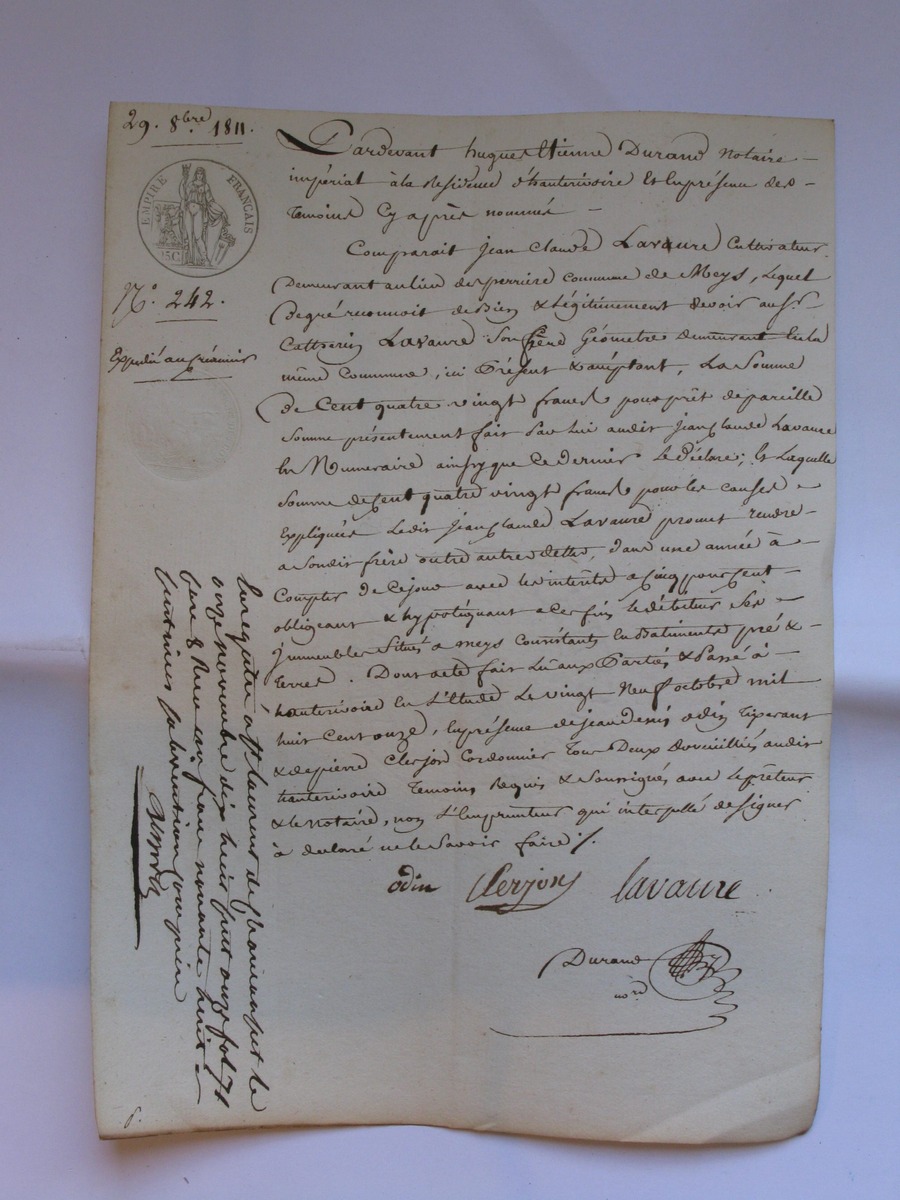 29. 8bre 1811.
EMPIRE FRANÇAIS
25C
N°. 242.
Expédié au créancier
Pardevant hugues Etienne Durand Notaire
impérial à la Residence d'hauterivoire Et En présence des
Temoins Cy après nommés
Comparait jean Claude Lavaure Cultivateur
Demeurant au lieu de perrière commune de Meys, Lequel
De gré reconnoit de Bien & Légitimement devoir au Sr.
Catherin Lavaure Son frère Géometre demeurant En la
même Commune, ici Présent & acceptant, La Somme
De Cent quatre vingt francs pour prêt de pareille
Somme présentement fait Par Lui audit jean Claude Lavaure
En Numeraire ainsy que Ce dernier Le Déclare; Et Laquelle
Somme de Cent quatre vingt francs pour les causes
Expliquées Ledit jean Claude Lavaure promet rendre
a Sondit frère outre autres dettes, dans une année à
Compter de Ce jour avec les intérêts a Cinq pour Cent
obligeant & hypotéquant a Ces fins le débiteur Ses
jmmeubles Situés a meys Consistants En Batiments pré &
terres. Dont acte fait Lu aux Parties & Passé à
hauterivoire En L'Etude Le vingt Neuf octobre mil
huit Cent onze, En présence de jean denis odin Tixerant
& de pierre Clerjon Cordonnier Tous Deux Domiciliés audit
hauterivoire Temoins Requis & Soussignés avec Le prêteur
& le Notaire, non L'Emprunteur qui interpellé de Signer
a declaré ne le Savoir faire /.
odin Clerjon lavaure
Durand
no.re
Enregistré à St laurent de Chamousset le
onze novembre dix huit cent onze fol 71
Reçu cinq francs novante huit
centimes subvention comprise